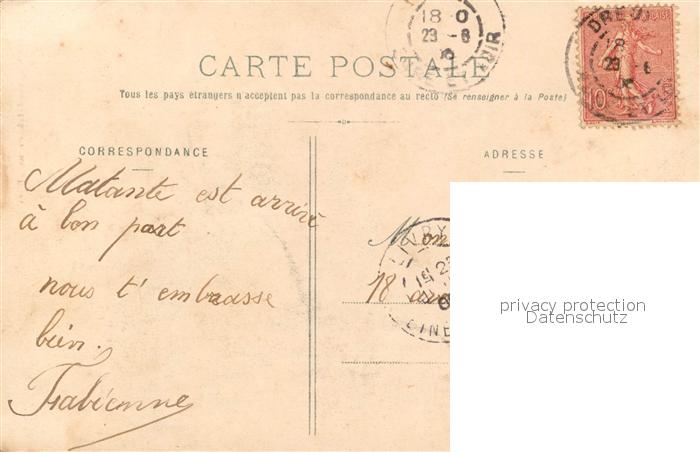 18 0
23 - 6
CARTE POSTALE
Tous les pays étrangers n'acceptent pas la correspondance au recto (Se renseigner à la Poste)
DREU
10
CORRESPONDANCE
ADRESSE
Matante est arrivé
à bon part
nous t'embrasse
bien.
Fabienne
Mon
18 av
privacy protection
Datenschutz